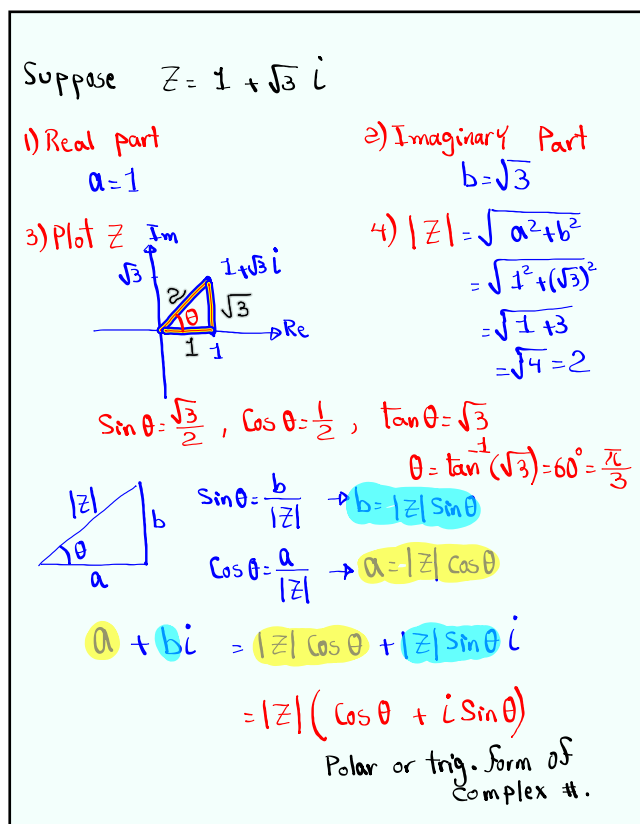 Suppose Z = 1 + √3 i
1) Real part
a = 1
2) Imaginary Part
b = √3
3) Plot Z
Im
√3
1 + √3 i
2
√3
θ
Re
1
1
4) |Z| = √(a² + b²)
= √(1² + (√3)²)
= √(1 + 3)
= √4 = 2
Sin θ = √3/2 , Cos θ = 1/2 , tan θ = √3
θ = tan⁻¹(√3) = 60° = π/3
|Z|
b
θ
a
Sin θ = b/|Z| → b = |Z| Sin θ
Cos θ = a/|Z| → a = |Z| Cos θ
a + bi = |Z| Cos θ + |Z| Sin θ i
= |Z| ( Cos θ + i Sin θ )
Polar or trig. form of
complex #.